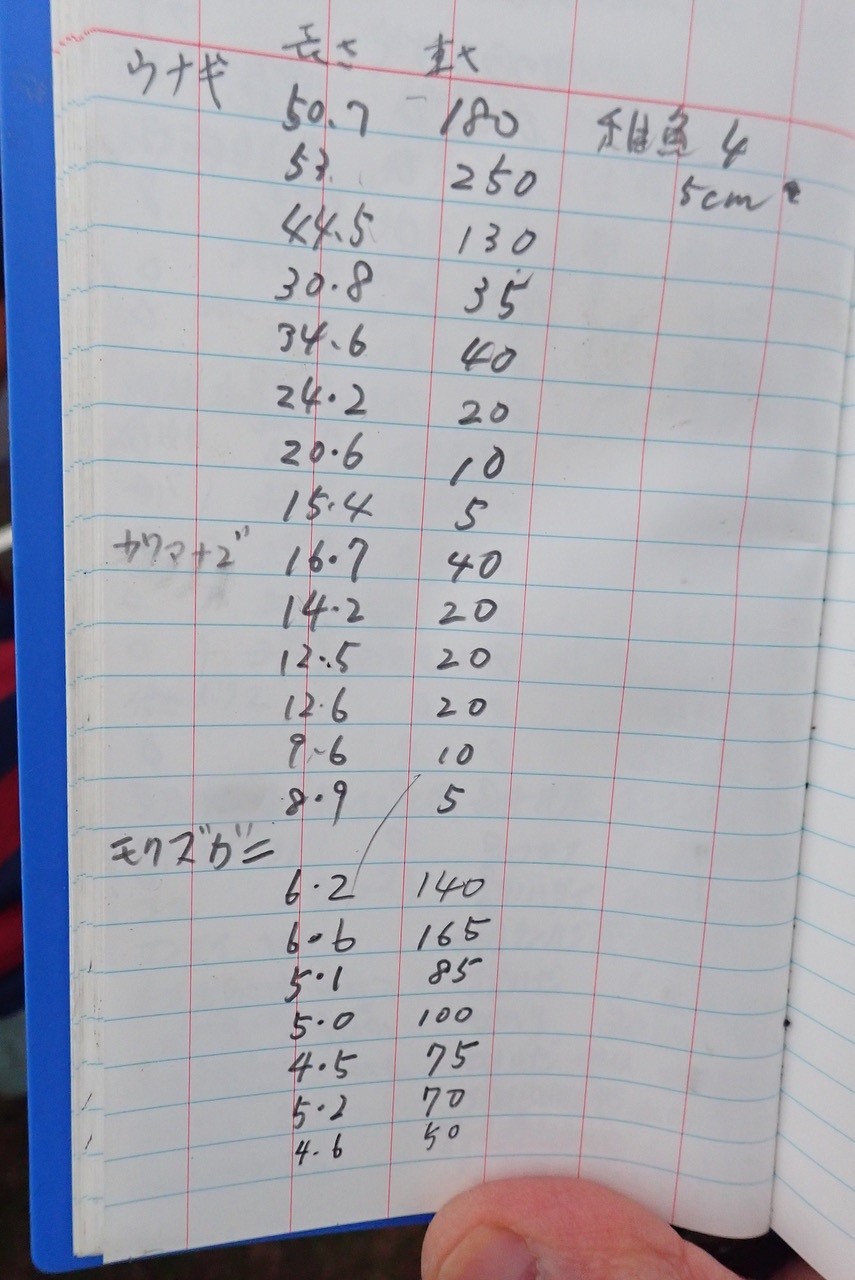 長さ 重さ
ウナギ 50.7 180 稚魚 4
53 250 5cm
44.5 130
30.8 35
34.6 40
24.2 20
20.6 10
15.4 5
カワアナゴ 16.7 40
14.2 20
12.5 20
12.6 20
9.6 10
8.9 5
モクズガニ
6.2 140
6.6 165
5.1 85
5.0 100
4.5 75
5.2 70
4.6 50